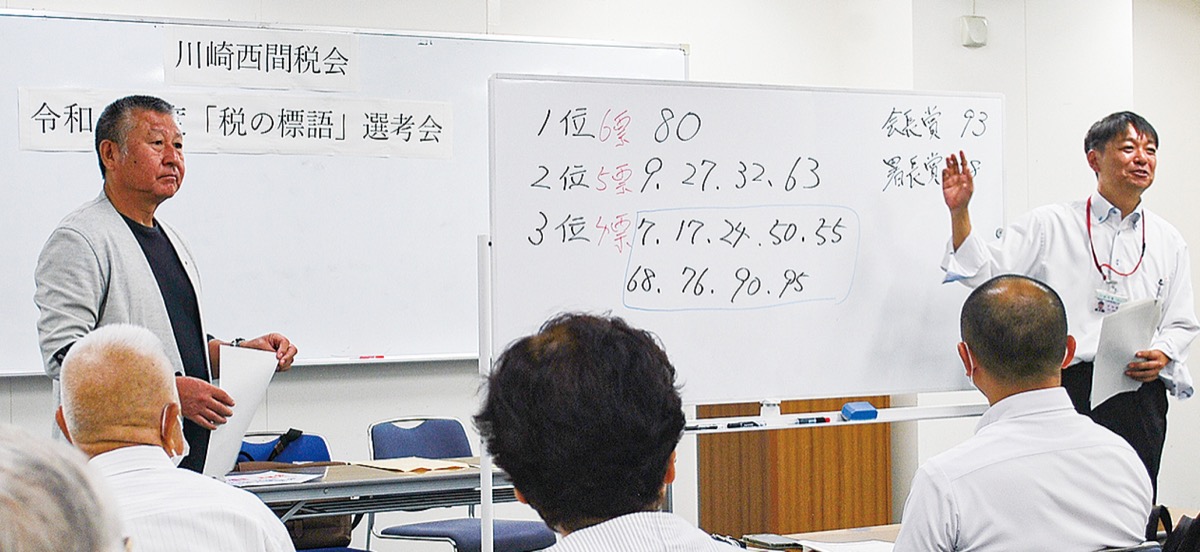 川崎西間税会
令和 度「税の標語」選考会
1位 6票 80
2位 5票 9. 27. 32. 63
3位 4票 7. 17. 24. 50. 55
68. 76. 90. 95
会長賞 93
署長賞 8